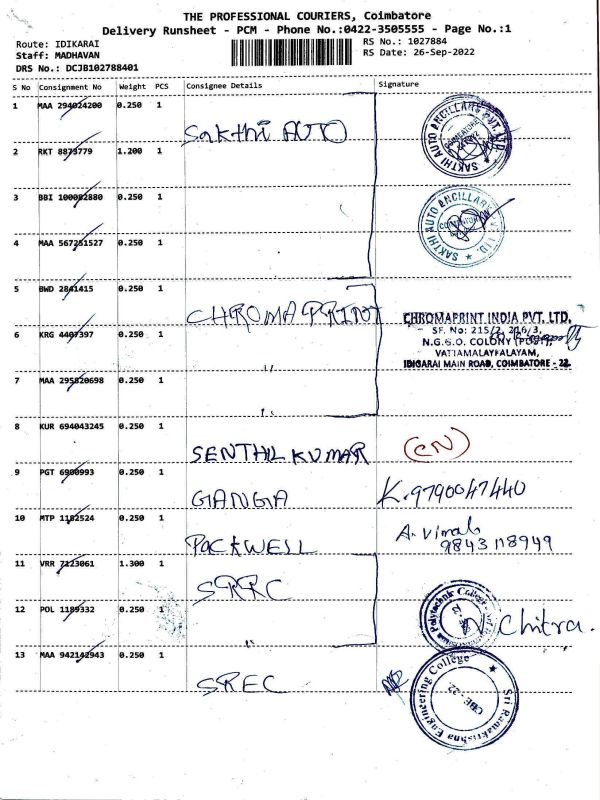 THE PROFESSIONAL COURIERS, Coimbatore
Delivery Runsheet - PCM - Phone No.:0422-3505555 - Page No.:1
Route: IDIKARAI
Staff: MADHAVAN
DRS No.: DCJB102788401
RS No.: 1027884
RS Date: 26-Sep-2022
S No Consignment No Weight PCS Consignee Details Signature
1 MAA 294024200 0.250 1 Sakthi AUTO
SAKTHI AUTO ANCILLARY PVT. LTD.
2 RKT 8873779 1.200 1
3 BBI 100082880 0.250 1
SAKTHI AUTO ANCILLARY PVT. LTD.
4 MAA 567251527 0.250 1
5 BWD 2841415 0.250 1 CHROMAPRINT
CHROMAPRINT INDIA PVT. LTD.
SF. No: 215/2, 216/3,
N.G.G.O. COLONY (POST),
VATTAMALAYPALAYAM,
IDIGARAI MAIN ROAD, COIMBATORE - 22.
6 KRG 4407397 0.250 1
7 MAA 295820698 0.250 1
8 KUR 694043245 0.250 1 SENTHIL KUMAR (CN)
9 PGT 6900993 0.250 1 GANGA K.9790047440
10 MTP 1182524 0.250 1 PACKWELL A. Vimal
9843118949
11 VRR 7123061 1.300 1 SRRC
12 POL 1189332 0.250 1 Chitra.
Polytechnic College
13 MAA 942142943 0.250 1 SREC
Sri Ramakrishna Engineering College
CBE - 22.